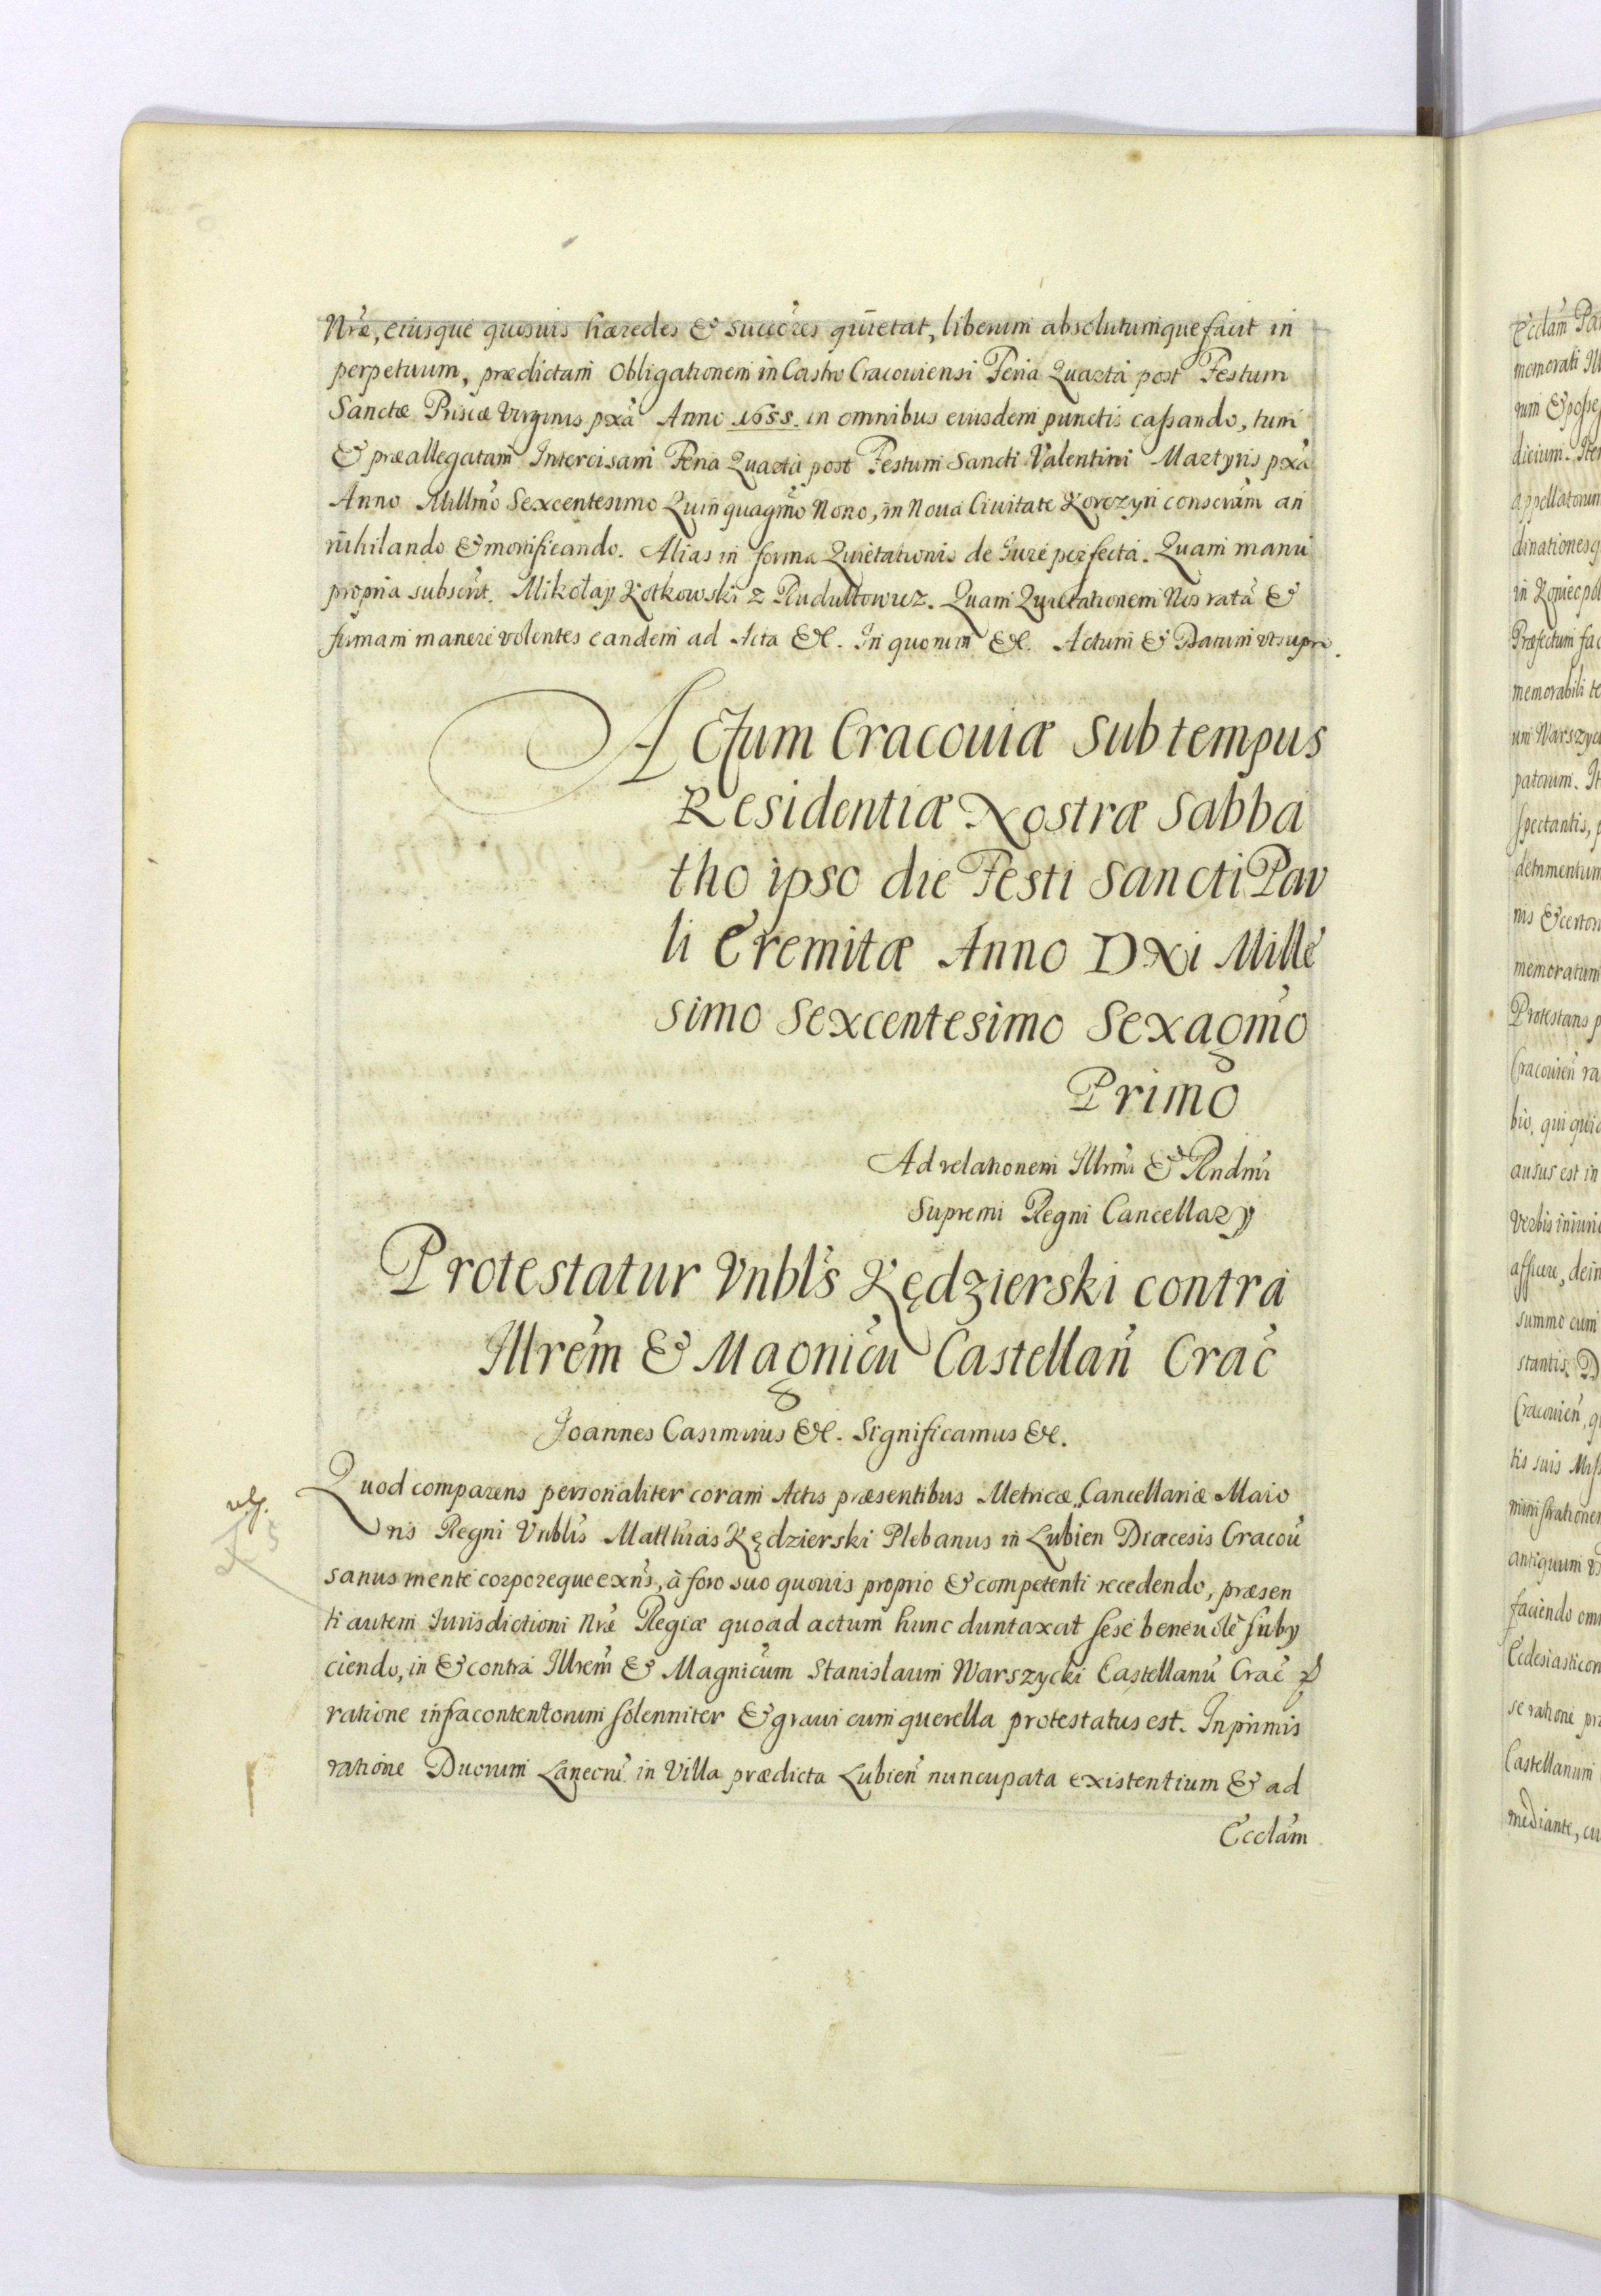 Nræ, eiusque quosuis hæredes & succores quietat, liberum absolutumque facit in
perpetuum, prædictam Obligationem in Castro Cracouiensi Feria Quarta post Festum
Sanctæ Priscæ Virginis pxa Anno 1655. in omnibus eiusdem punctis cassando, tum
& præallegatam Intercisam Feria Quarta post Festum Sancti Valentini Martyris pxa
Anno Millmo Sexcentesimo Quinquagmo Nono, in Noua Ciuitate Korczyn conseram an
nihilando & mortificando. Alias in forma Quietationis de Iure perfecta. Quam manu
propria subscrit. Mikołay Kotkowski z Rudułtowicz. Quam Quietationem Nos rata &
firmam manere volentes eandem ad Acta &c. In quorum &c. Actum & Datum vtsupra.
Actum Cracouiæ Sub tempus
Residentiæ Nostræ Sabba
tho ipso die Festi Sancti Pau
li Eremitæ Anno DNi Mille
simo Sexcentesimo Sexagmo
Primo
Ad relationem Illrmi & Rndmi
Supremi Regni Cancellary
Protestatur Vnbls Kędzierski contra
Illrem & Magnicu Castellan Crac
Joannes Casimirus &c. Significamus &c.
Quod comparens personaliter coram Actis præsentibus Metricæ Cancellariæ Maio
ris Regni Vnblis Matthias Kędzierski Plebanus in Lubien Diæcesis Cracou
sanus mente corporeque exns, à foro suo quouis proprio & competenti recedendo, præsen
ti autem Iurisdictioni Nræ Regiæ quoad actum hunc duntaxat sese beneuole suby
ciendo, in & contra Illrem & Magnicum Stanislaum Warszycki Castellanu Crac
ratione infracontentorum solenniter & graui cum querella protestatus est. Inprimis
ratione Duorum Laneoru in Villa prædicta Lubien nuncupata existentium & ad
Ecclam